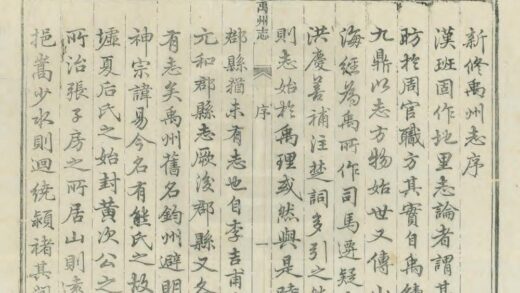 新修禹州志序
漢班固作地里志論者謂其
昉於周官職方其實自禹
九鼎以志方物始世又傳山
海經為禹所作司馬遷疑
洪慶善補注楚詞多引之
則志始於禹理或然與是
禹州志
序
一
郡縣猶未有志也自李吉甫
元和郡縣志厥後郡縣又各
有志矣禹州舊名鈞州避明
神宗諱易今名有熊氏之故
墟夏后氏之始封黃次公之
所治張子房之所居山則
挹嵩少水則迴繞潁褚其